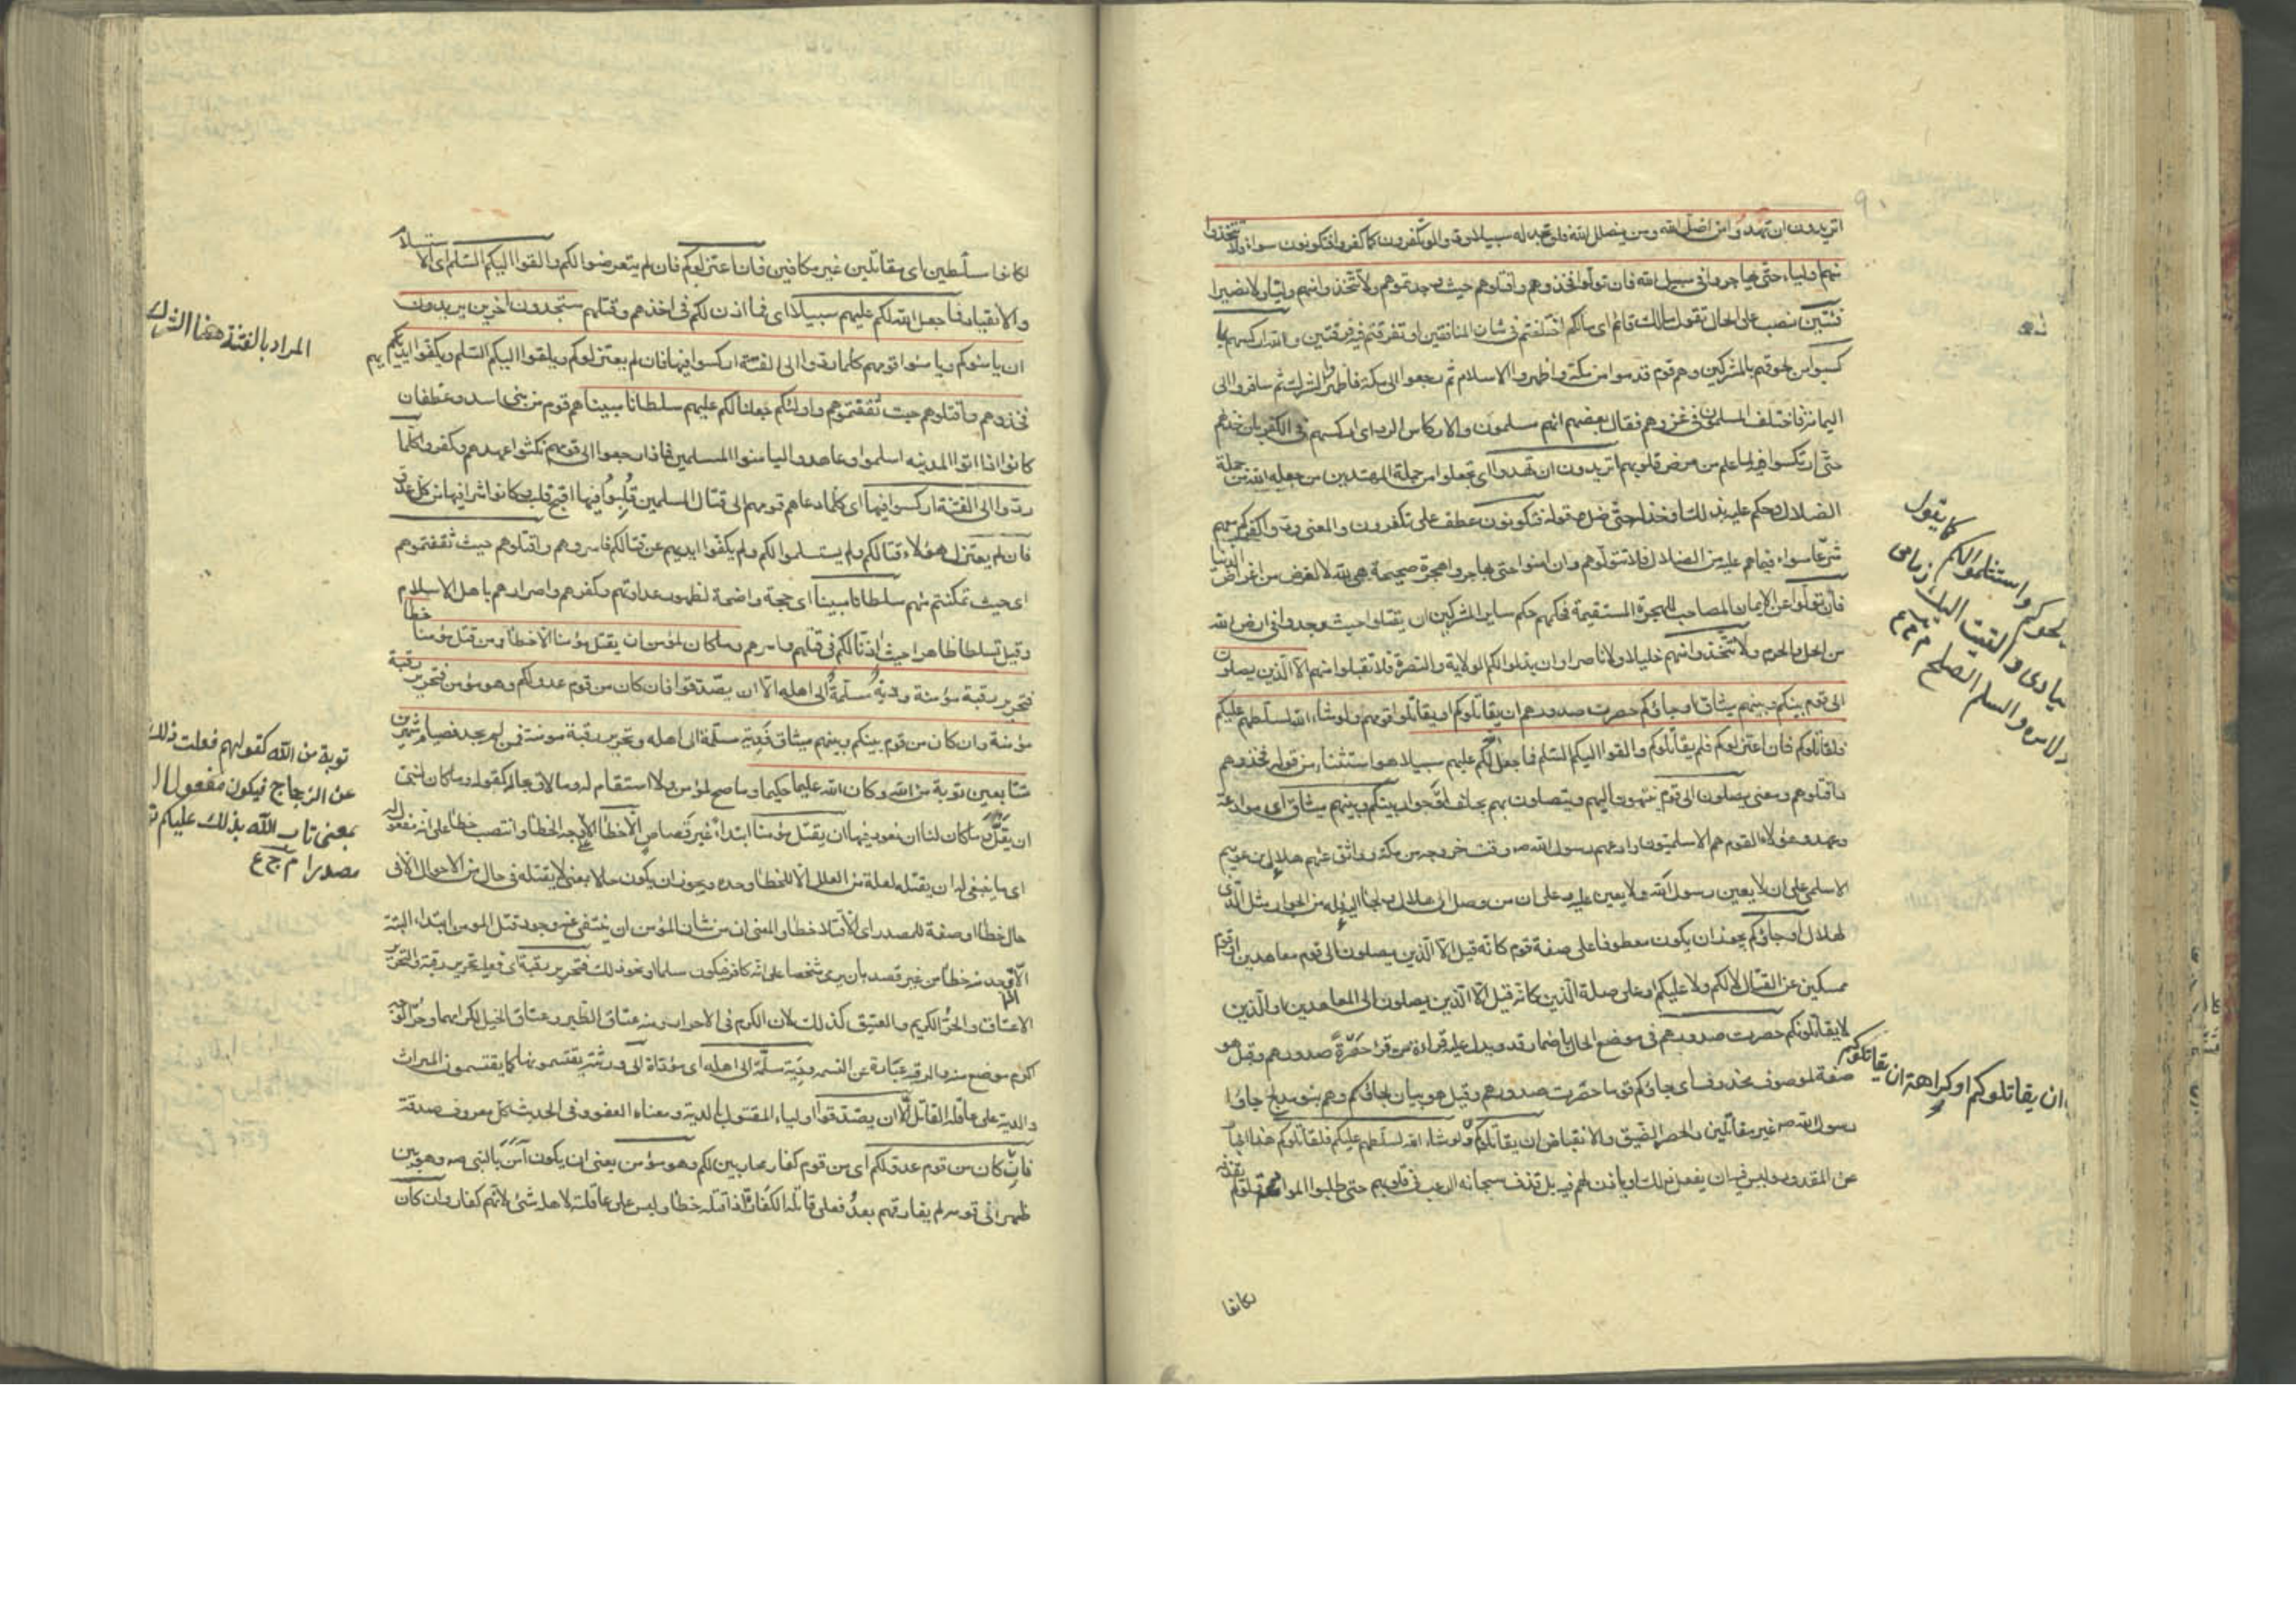 اتريدون ان تهدوا من اضل الله ومن يضلل الله فلن تجد له سبيلا ودوا لو تكفرون كما كفروا فتكونون سواء فلا تتخذوا
منهم اولياء حتى يهاجروا في سبيل الله فان تولوا فخذوهم واقتلوهم حيث وجدتموهم ولا تتخذوا منهم وليا ولا نصيرا
فئتين نصب على الحال تقول مالك قائما اى مالكم اختلفتم في شان المنافقين او تفرقتم فيه فرقتين والله اركسهم بما
كسبوا من لحوقهم بالمشركين وهم قوم قدموا من مكة واظهروا الاسلام ثم رجعوا الى مكة فاظهروا الشرك ثم سافروا الى
اليمامة فاختلف المسلمون في غزوهم فقال بعضهم انهم مسلمون والاركاس الرد اى اركسهم في الكفر بان خذلهم
حتى ارتكسوا فيه لما علم من مرض قلوبهم اتريدون ان تهدوا اى تجعلوا من جملة المهتدين من جعله الله من جملة
الضلال وحكم عليه بذلك او خذله حتى ضل وقوله فتكونون عطف على تكفرون والمعنى ودوا لو كفركم وكونكم معهم
شرعا سواء فيما هم عليه من الضلال فلا تتولوهم وان امنوا حتى يهاجروا هجرة صحيحة هي لله لا لغرض من اغراض الدنيا
فان تولوا عن الايمان المصاحب للهجرة المستقيمة فحكمهم حكم ساير المشركين ان يقتلوا حيث وجدوا في ارض الله
من الحل والحرم ولا تتخذوا منهم خليلا ولا ناصرا وان بذلوا لكم الولاية والنصرة فلا تقبلوا منهم الا الذين يصلون
الى قوم بينكم وبينهم ميثاق او جاؤكم حصرت صدورهم ان يقاتلوكم او يقاتلوا قومهم ولو شاء الله لسلطهم عليكم
فلقاتلوكم فان اعتزلوكم فلم يقاتلوكم والقوا اليكم السلم فما جعل الله لكم عليهم سبيلا هو استثناء من قوله فخذوهم
واقتلوهم ومعنى يصلون الى قوم ينتهون اليهم ويتصلون بهم بحلف او جوار بينكم وبينهم ميثاق اى موادعة
وعهد وهؤلاء القوم هم الاسلميون وادعهم رسول الله صه وقت خروجه من مكة وواثق عنهم هلال بن عويمر
الاسلمي على ان لا يعين رسول الله ولا يعين عليه وعلى ان من وصل الى هلال ولجأ اليه فله من الجوار مثل الذي
لهلال او جاؤكم يجوز ان يكون معطوفا على صفة قوم كانه قيل الا الذين يصلون الى قوم معاهدين او قوم
ممسكين عن القتال لا لكم ولا عليكم او على صلة الذين كانه قيل الا الذين يصلون الى المعاهدين او الذين
لا يقاتلونكم حصرت صدورهم في موضع الحال باضمار قد ويدل عليه قراءة من قرأ حصرة صدورهم وقيل هو
صفة لموصوف محذوف اى جاؤكم قوما حصرت صدورهم وقيل هو بيان لجاؤكم وهم بنو مدلج جاؤا
رسول الله صه غير مقاتلين والحصر الضيق والانقباض ان يقاتلوكم ولو شاء الله لسلطهم عليكم فلقاتلوكم هذا اخبار
عن المقدور وليس فيه ان يفعل ذلك او ياذن لهم فيه بل قذف سبحانه الرعب في قلوبهم حتى طلبوا الموادعة
لكانوا
كما يقول
واستسلموا لكم
والقيت اليك زمامى
والسلم الصلح م ج ع
ان يقاتلوكم او كراهة ان يقاتلوكم
لكانوا مسلطين اى مقاتلين غير مكافين فان اعتزلوكم فان لم يتعرضوا لكم والقوا اليكم السلم اى الاستسلام
والانقياد فما جعل الله لكم عليهم سبيلا اى فما اذن لكم في اخذهم وقتلهم ستجدون اخرين يريدون
ان يامنوكم ويامنوا قومهم كلما ردوا الى الفتنة اركسوا فيها فان لم يعتزلوكم ويلقوا اليكم السلم ويكفوا ايديهم
فخذوهم واقتلوهم حيث ثقفتموهم واولئكم جعلنا لكم عليهم سلطانا مبينا هم قوم من بني اسد وغطفان
كانوا اذا اتوا المدينه اسلموا وعاهدوا ليامنوا المسلمين فاذا رجعوا الى قومهم نكثوا عهدهم وكفروا كلما
ردوا الى الفتنة اركسوا فيها اى كلما دعاهم قومهم الى قتال المسلمين قلبوا فيها اقبح قلب وكانوا شرا فيها من كل عدو
فان لم يعتزل هؤلاء قتالكم ولم يستسلموا لكم ولم يكفوا ايديهم عن قتالكم فاسروهم واقتلوهم حيث ثقفتموهم
اى حيث تمكنتم منهم سلطانا مبينا اى حجة واضحة لظهور عداوتهم وكفرهم واضرارهم باهل الاسلام
وقيل تسلطا ظاهرا حيث اذنا لكم في قتلهم واسرهم وما كان لمؤمن ان يقتل مؤمنا الا خطأ ومن قتل مؤمنا خطأ
فتحرير رقبة مؤمنة ودية مسلمة الى اهله الا ان يصدقوا فان كان من قوم عدو لكم وهو مؤمن فتحرير رقبة
مؤمنة وان كان من قوم بينكم وبينهم ميثاق فدية مسلمة الى اهله وتحرير رقبة مؤمنة فمن لم يجد فصيام شهرين
متتابعين توبة من الله وكان الله عليما حكيما وما صح لمؤمن ولا استقام له وما لاق بحاله كقوله وما كان لنبى
ان يغل وما كان لنا ان نعود فيها ان يقتل مؤمنا ابتداء غير قصاص الا خطأ الا على وجه الخطأ وانتصب خطأ على انه مفعول له
اى ما ينبغي له ان يقتله لعلة من العلل الا للخطأ وحده ويجوز ان يكون حالا بمعنى لا يقتله في حال من الاحوال الا في
حال خطأ او صفة للمصدر اى الا قتلا خطأ والمعنى ان من شان المؤمن ان ينتفى عنه وجود قتل المومن ابتداء البتة
الا ان وجد منه خطأ من غير قصد بان يرمى شخصا على انه كافر فيكون مسلما او نحو ذلك فتحرير رقبة اى فعليه تحرير رقبة والتحرير
الاعتاق والحر الكريم والعتيق كذلك لان الكرم في الاحرار ومنه عتاق الطير وعتاق الخيل لكرامها وحر الوجه
اكرم موضع منه والرقبة عبارة عن النسمه ودية مسلمة الى اهله اى مؤداة الى ورثته يقتسمونها كما يقتسمون الميراث
والدية على عاقلة القاتل الا ان يصدقوا اولياء المقتول بالدية ومعناه العفو وفي الحديث كل معروف صدقة
فان كان من قوم عدو لكم اى من قوم كفار محاربين لكم وهو مؤمن يعني ان يكون آمن بالنبي صه وهو بين
ظهرانى قومه لم يفارقهم بعد فعلى قاتله الكفارة اذا قتله خطأ وليس على عاقلته لاهله شئ لانهم كفار وان كان
المراد بالفتنة ههنا الشرك
توبة من الله كقولهم فعلت ذلك
عن الزجاج فيكون مفعولا
بمعنى تاب الله بذلك عليكم
مصدرا م ج ع